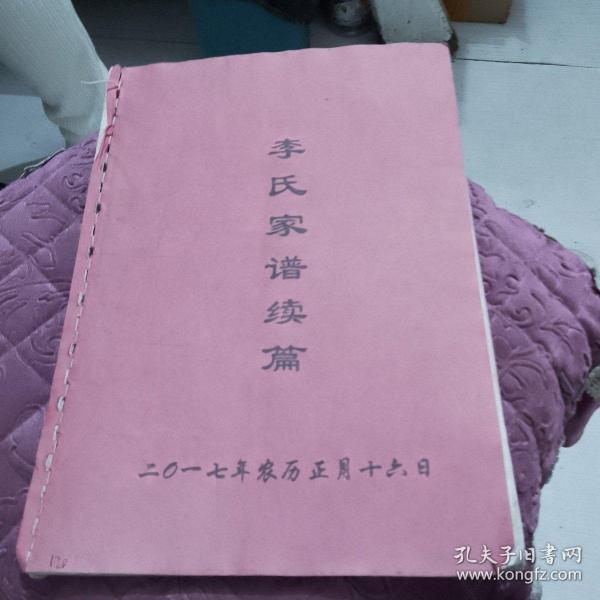 李氏家谱续篇
二〇一七年农历正月十六日
120
孔夫子旧書网
www.kongfz.com